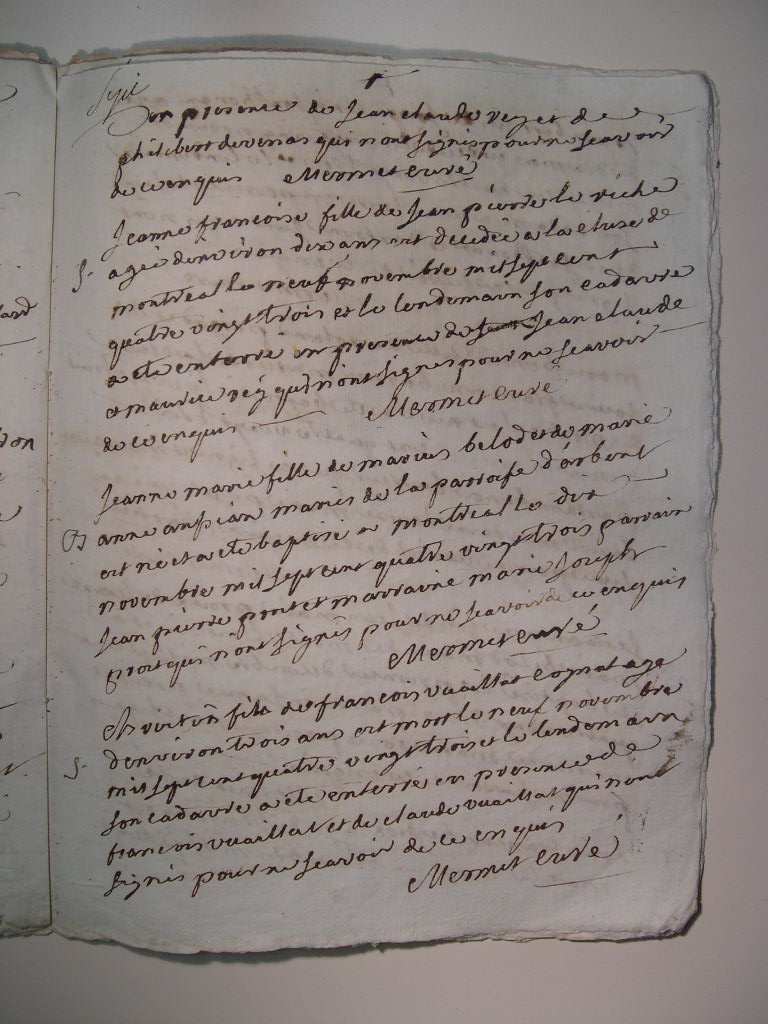 en presence de Jean claude rey et de
philibert devenas qui nont signes pour ne scavoir
de ce enquis Mermet curé
Jeanne francoise fille de Jean pierre le riche
S. agée denviron dix ans est decedée a la cluse de
montreal le neuf novembre mil sept cent
quatre vingt trois et le lendemain son cadavre
a ete enterré en presence de Jean claude
et maurice rey qui nont signes pour ne scavoir
de ce enquis Mermet curé
Jeanne marie fille de marius belod et de marie
B anne maries de la paroisse d'arbent
est né et a ete baptisé a montreal le dix
novembre mil sept cent quatre vingt trois parrain
Jean pierre prost et marraine marie Joseph
prost qui nont signés pour ne scavoir de ce enquis
Mermet curé
fils de francois vuaillat cognat age
S. denviron trois ans est mort le neuf novembre
mil sept cent quatre vingt trois et le lendemain
son cadavre a ete enterré en presence de
francois vuaillat et de claude vuaillat qui nont
signés pour ne scavoir de ce enquis
Mermet curé